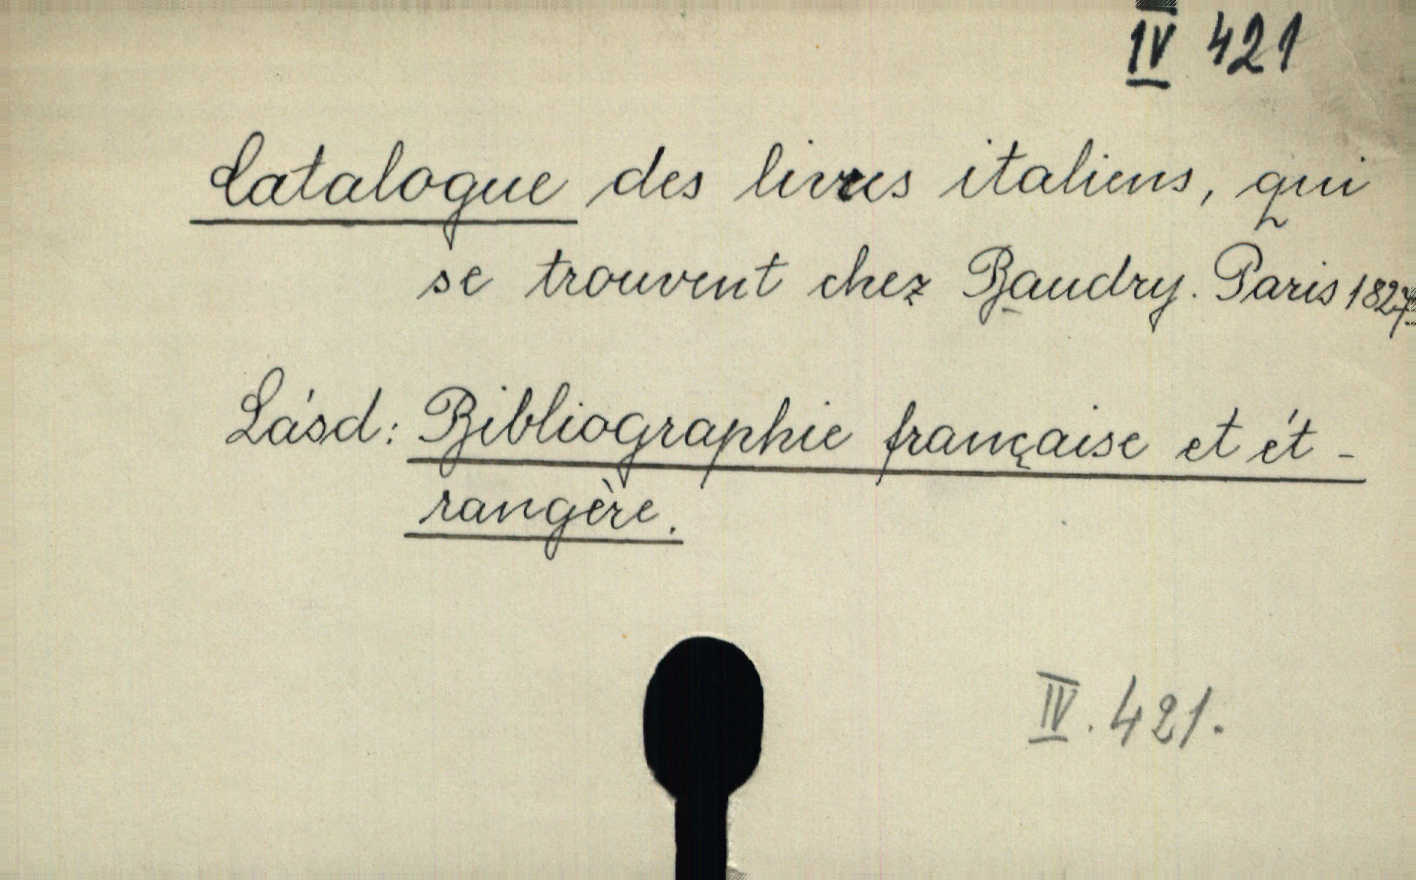 IV 421
Catalogue des livres italiens, qui
se trouvent chez Baudry. Paris 1827
Lásd: Bibliographie française et ét-
rangère.
IV. 421.